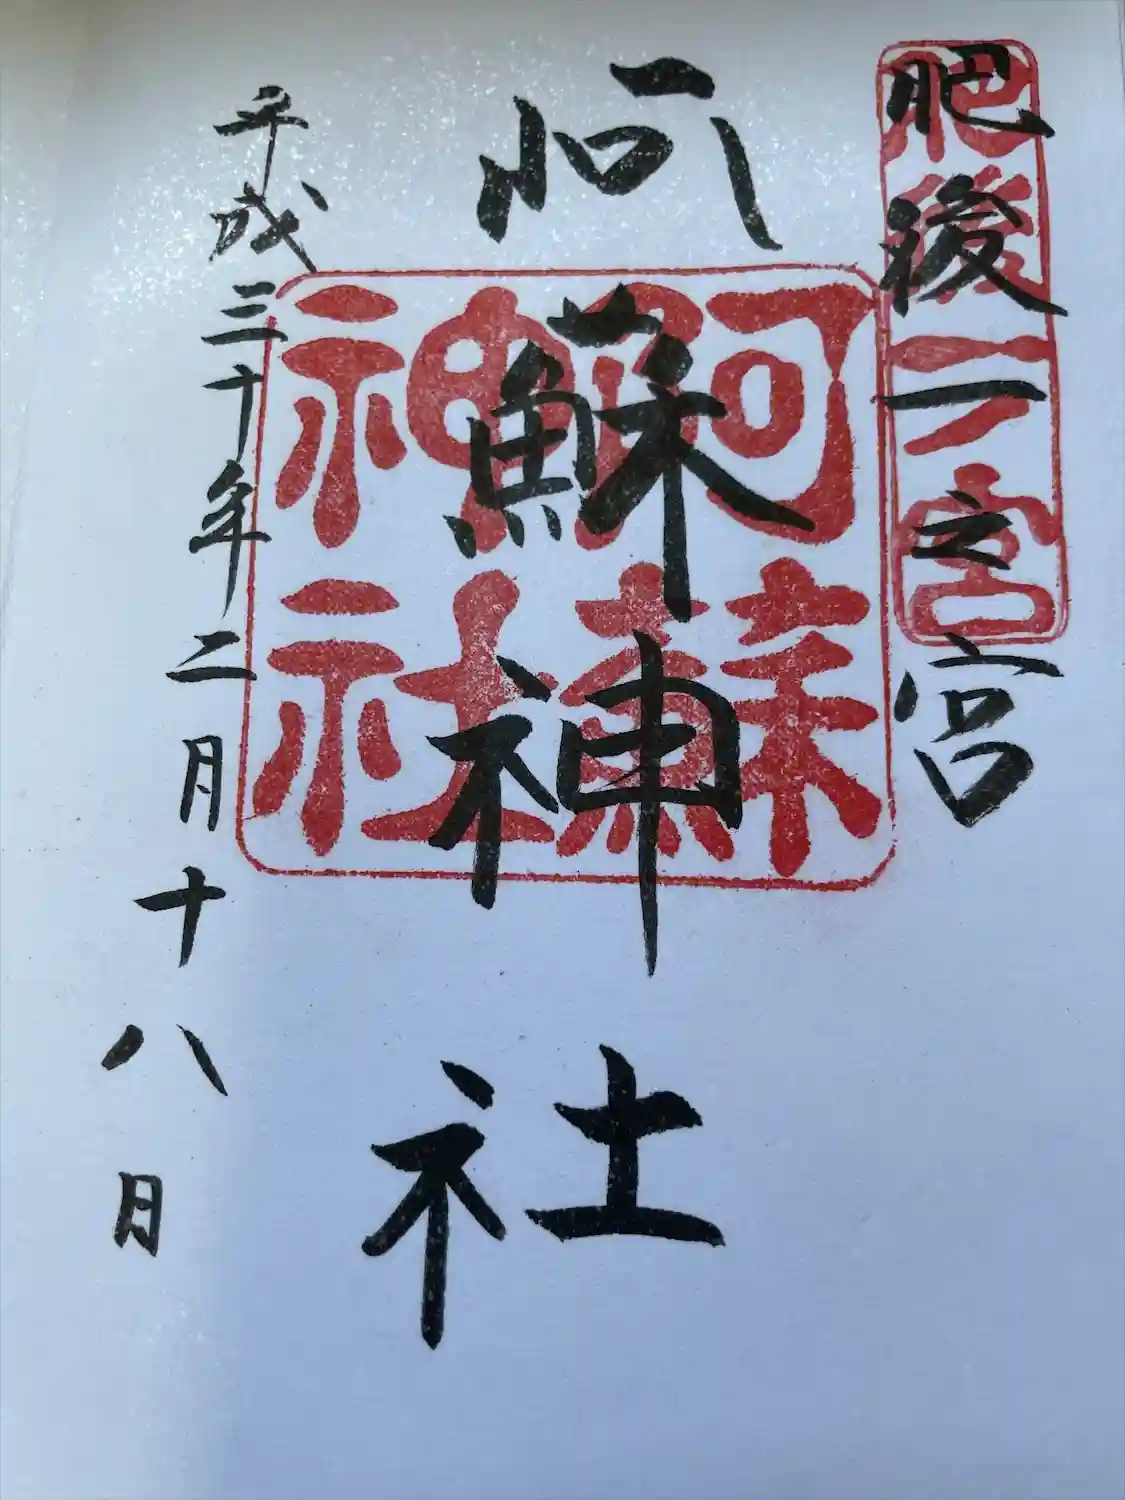 肥後一之宮
肥後一ノ宮
阿蘇神社
阿蘇神社
平成三十年二月十八日